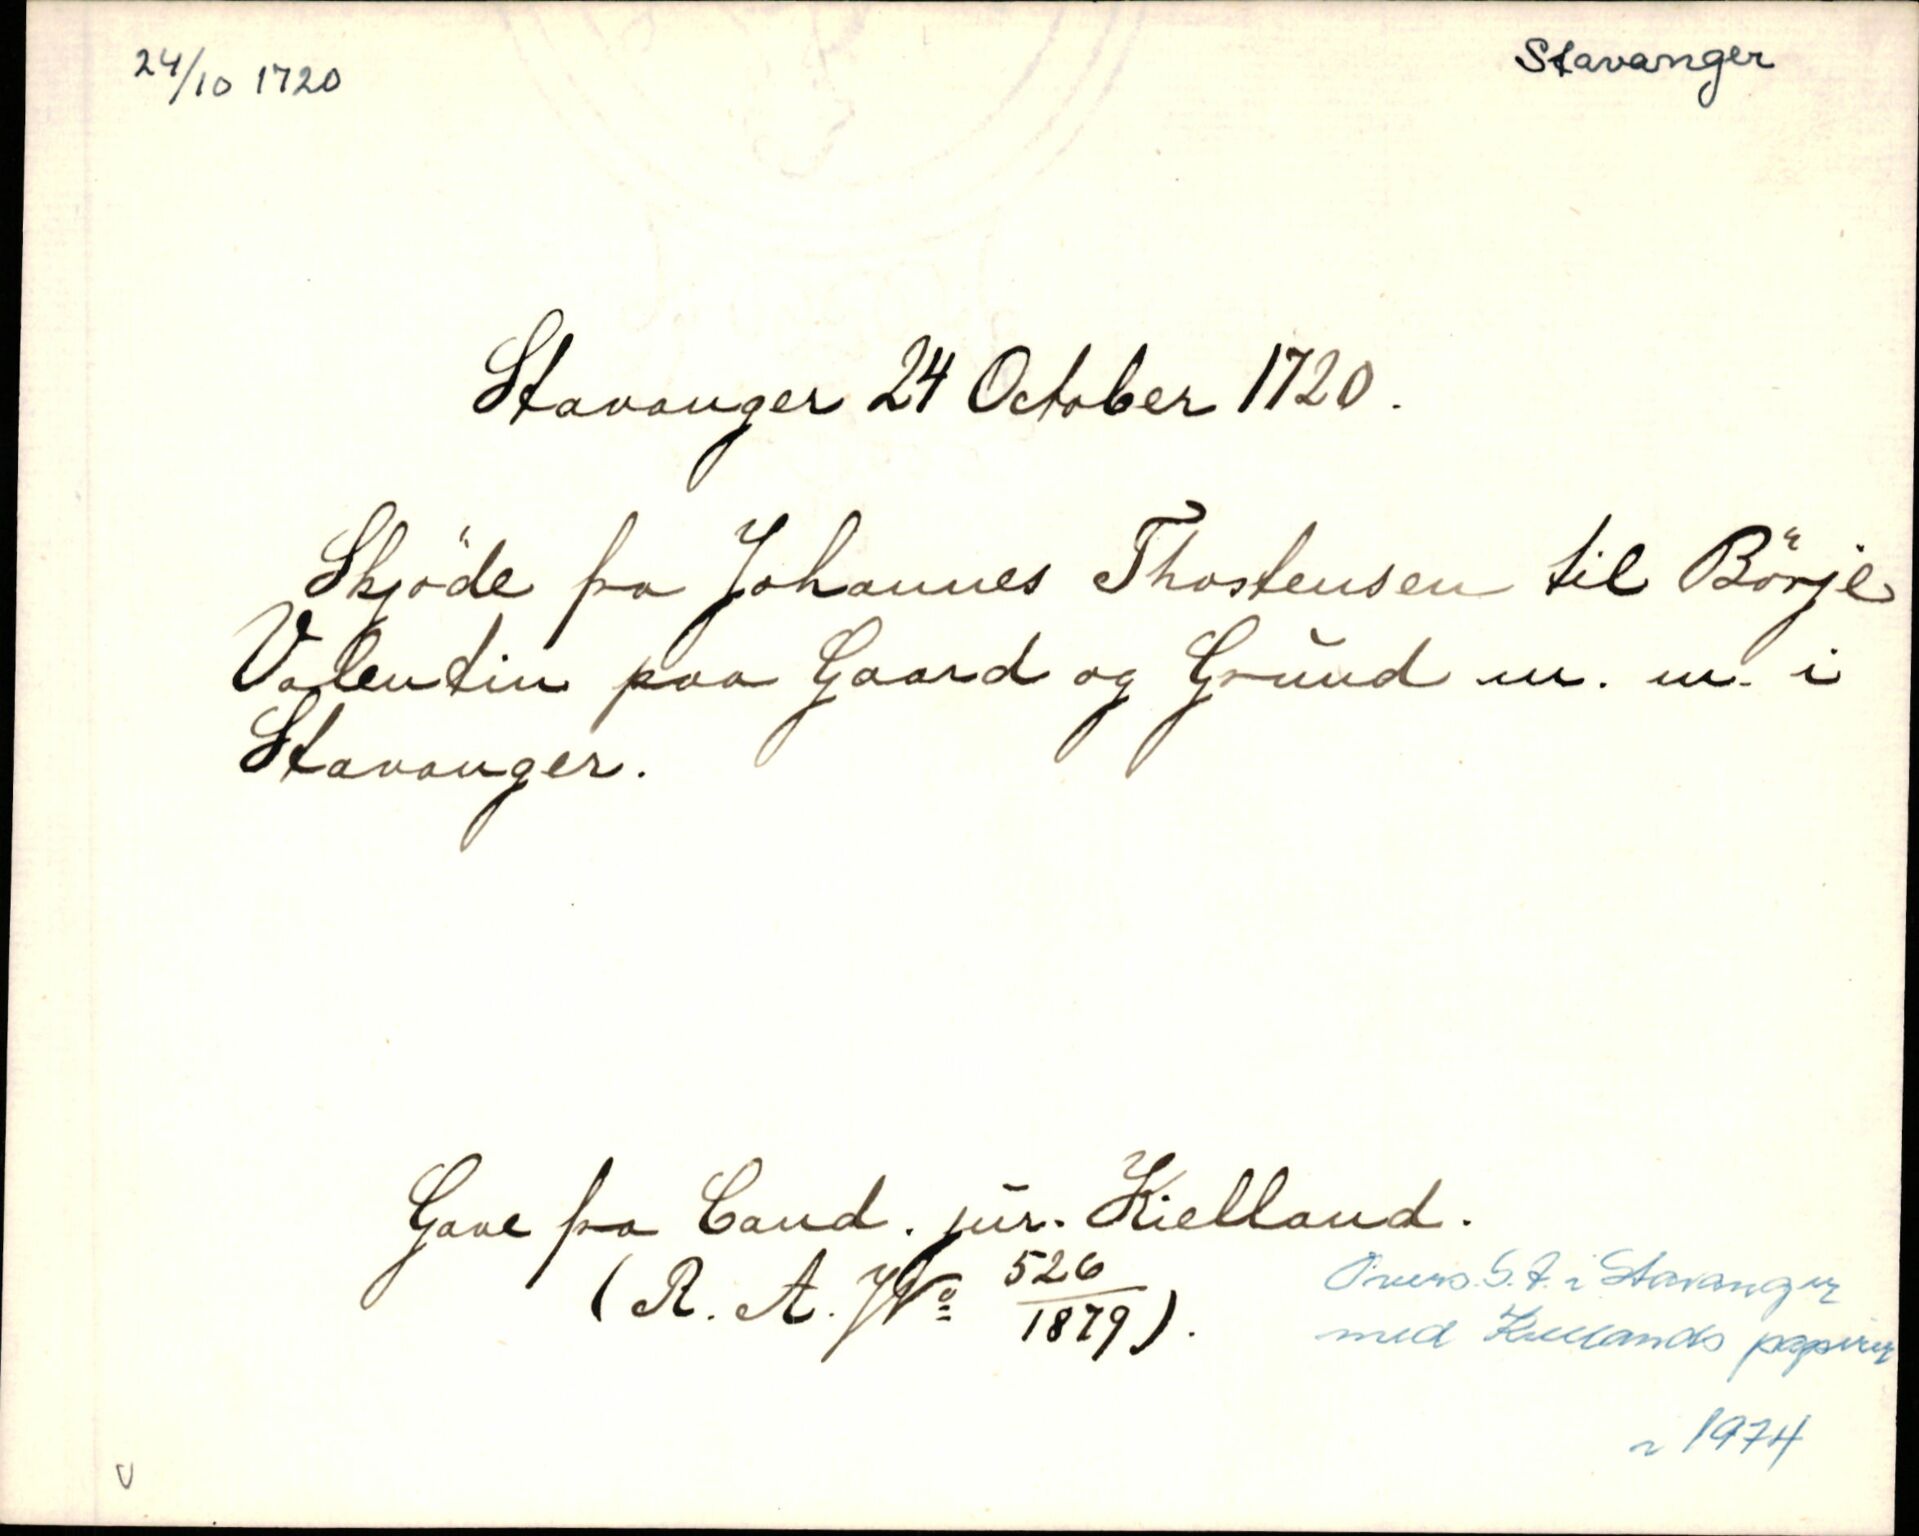 24/10 1720
Stavanger
Stavanger 24 October 1720.
Skjöde fra Johannes Thostensen til Börje
Valentin paa Gaard og Grund m. m. i
Stavanger.
Gave fra Cand. jur. Kielland.
(R. A. No 526/1879).
Overs. S. A. i Stavanger
med Kiellands papirer
i 1974
v